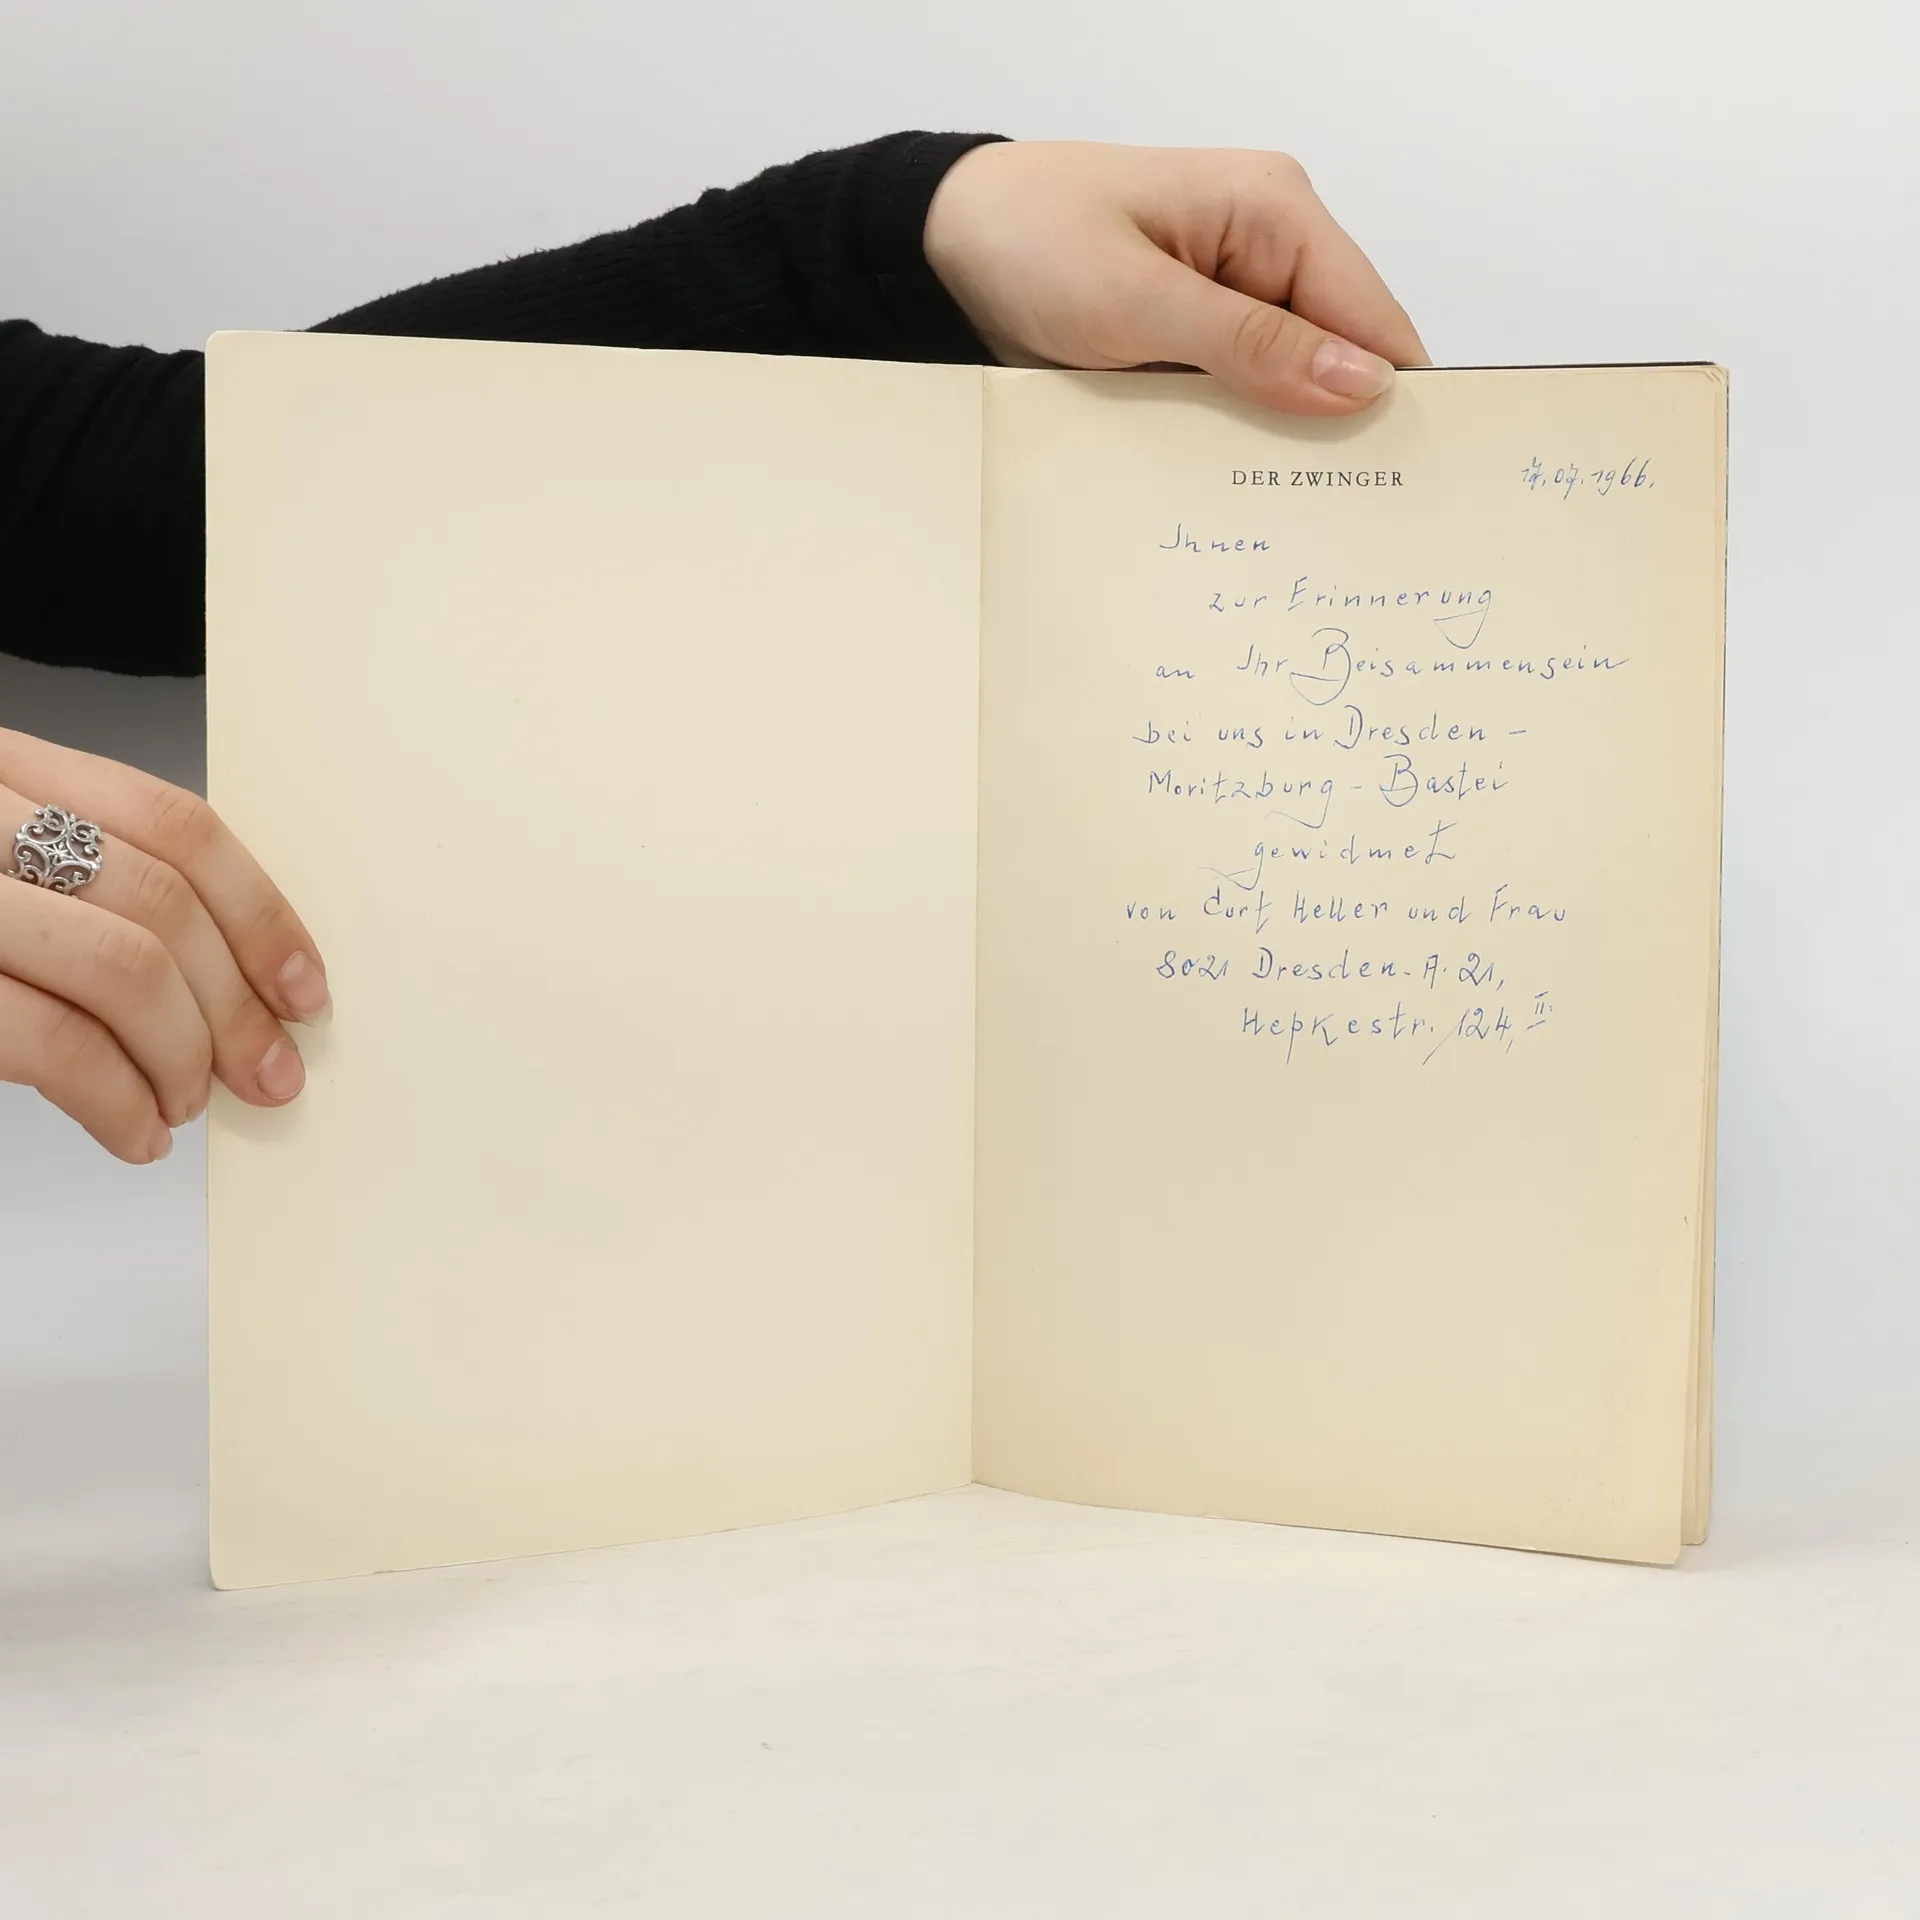 DER ZWINGER 17.07.1966.
Ihnen
zur Erinnerung
an Ihr Beisammensein
bei uns in Dresden -
Moritzburg - Bastei
gewidmet
von Curt Heller und Frau
8021 Dresden. A. 21,
Hepkestr. 124, II.